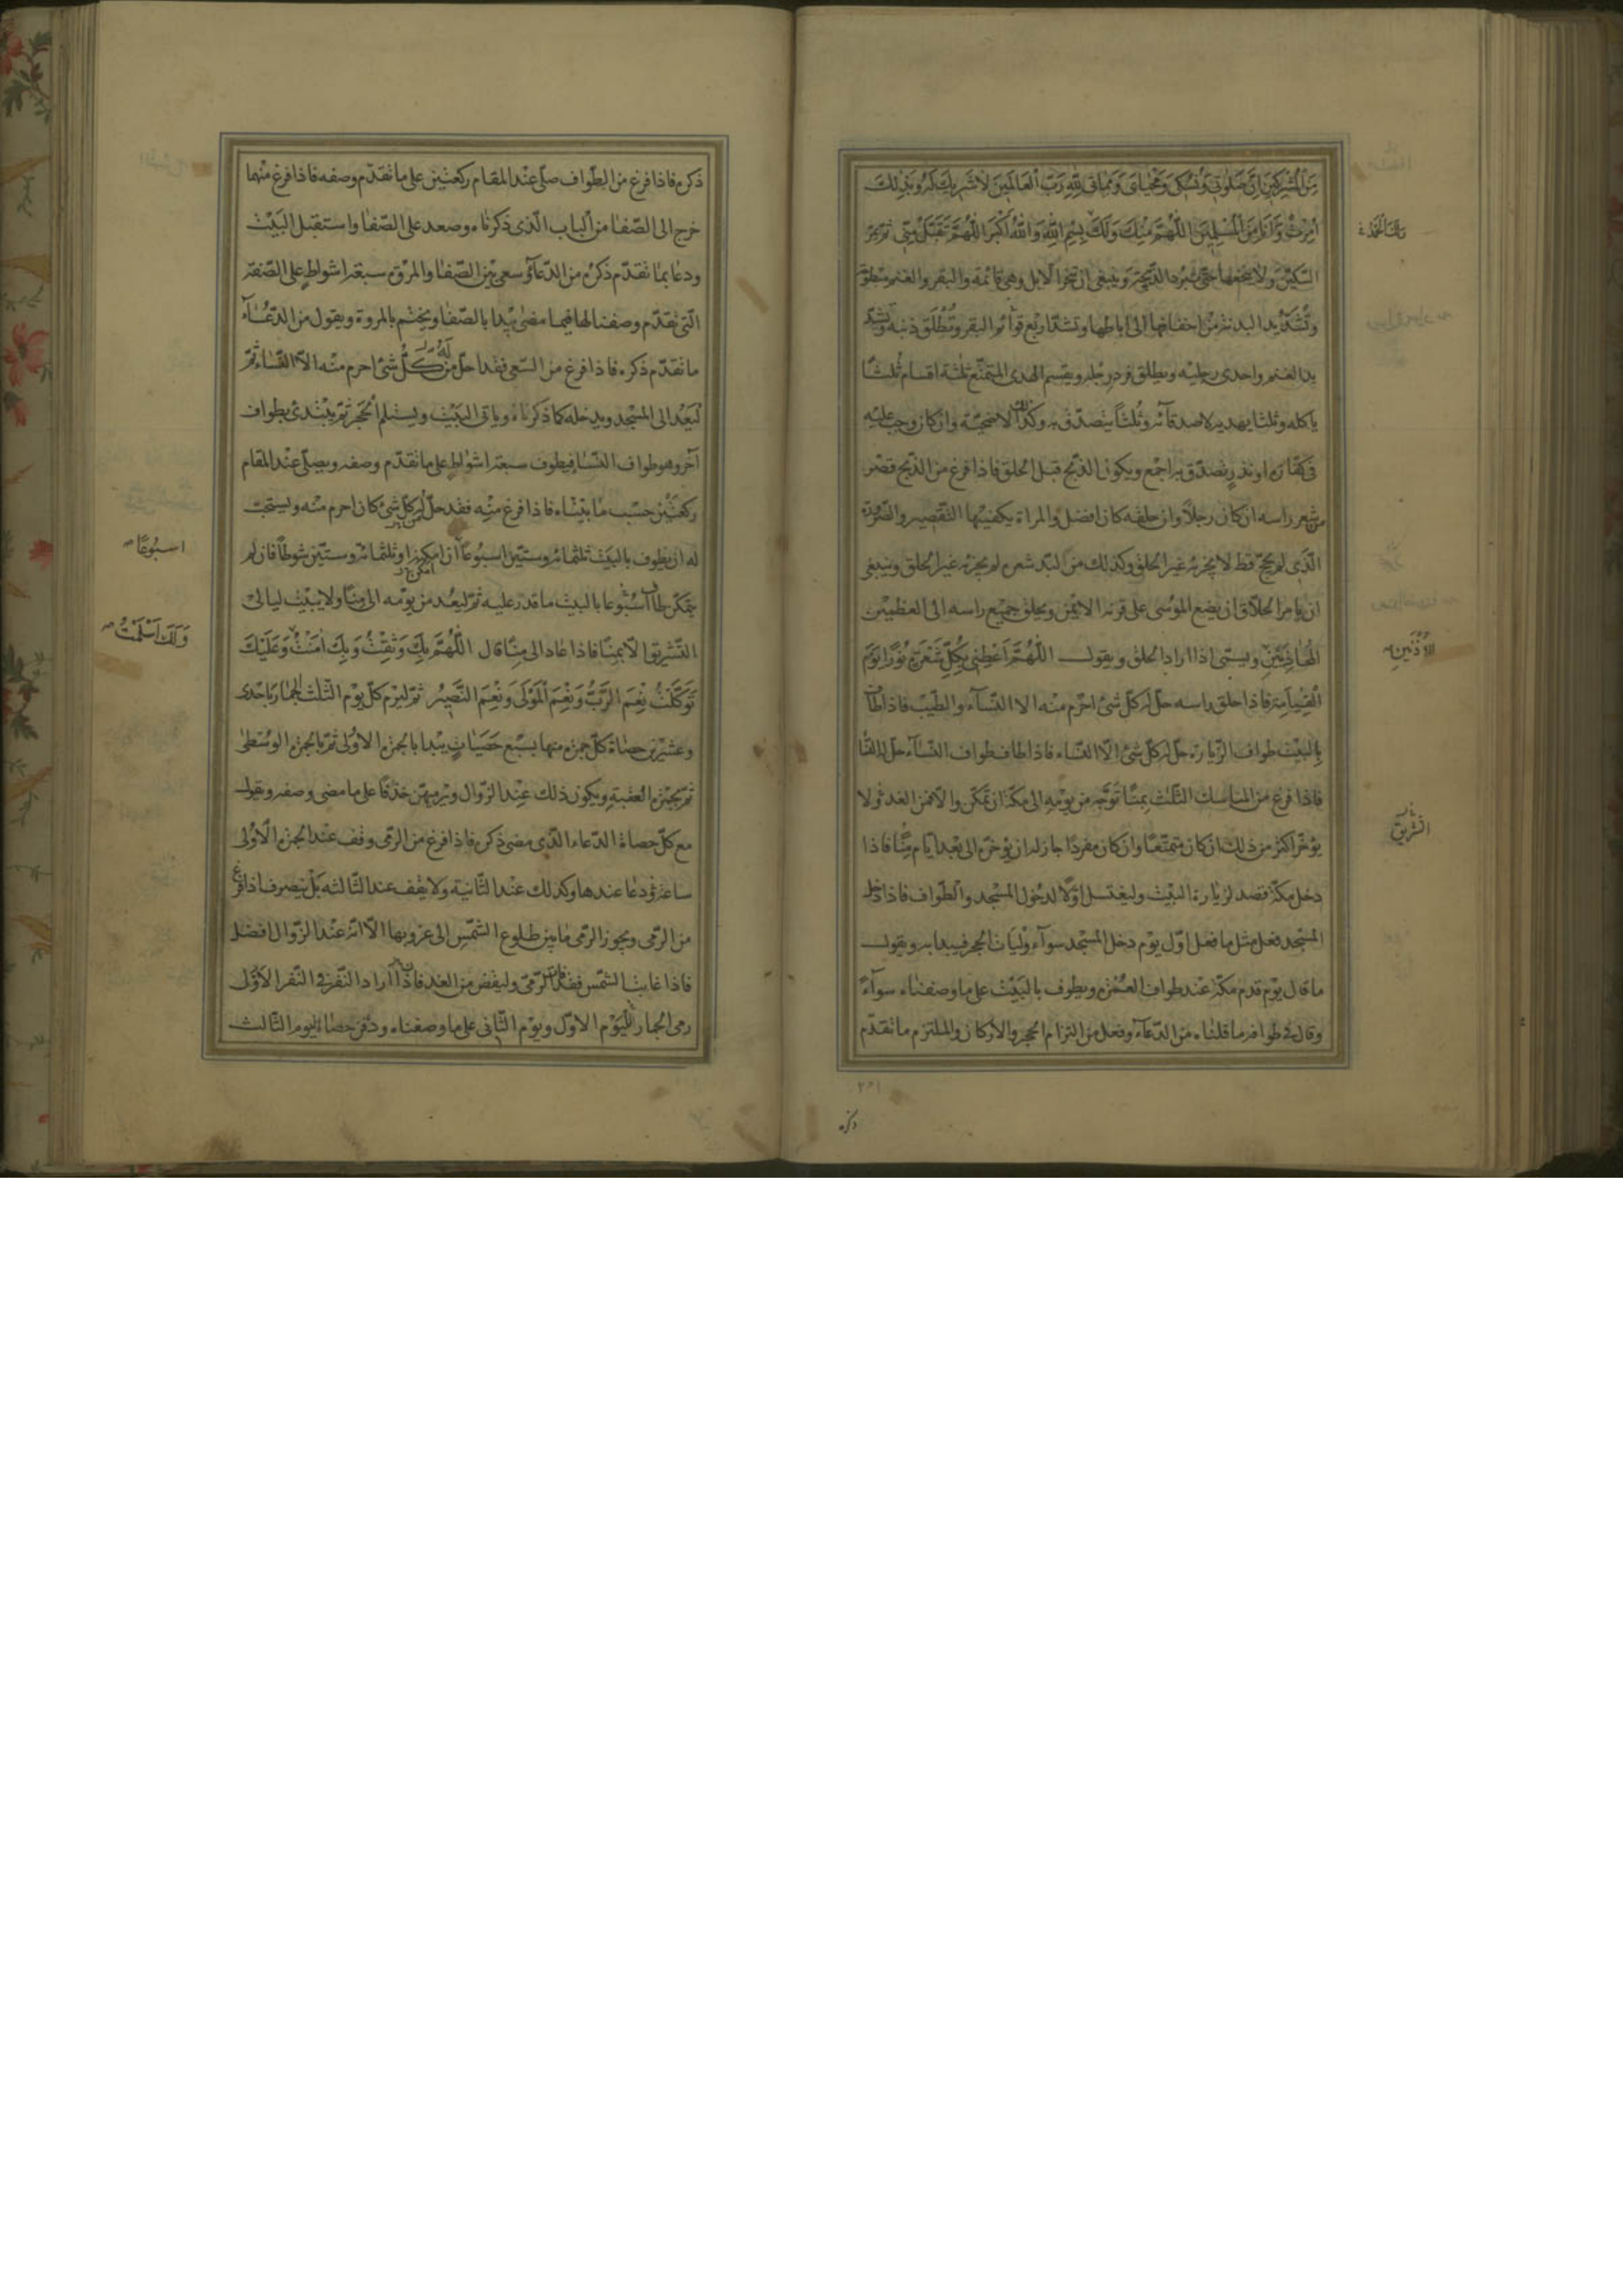 من المشركين ان صلوتي ونسكي ومحياي ومماتي لله رب العالمين لا شريك له وبذلك
امرت وانا من المسلمين اللهم منك ولك بسم الله والله اكبر اللهم تقبل مني ثم يمر
السكين ولا ينخعها حتى تبرد الذبيحة وينبغي ان تنحر الابل وهي قائمة والبقر والغنم
وتشد يد البدنة من اخفافها الى اباطها وتشد اربع قوائم البقر وتطلق ذنبه وتشد
يد الغنم واحدى رجليه ويطلق فرد رجله ويقسم الهدى المتمتع ثلثة اقسام ثلثا
ياكله وثلثا يهديه لاصدقائه وثلثا يتصدق به وكذلك الاضحية وان كان وجب عليه
في كفارة او نذر يتصدق به اجمع ويكون الذبح قبل الحلق فاذا فرغ من الذبح قصر
من شعر راسه ان كان رجلا وان حلقه كان افضل والمراة يكفيها التقصير والصرورة
الذى لم يحج قط لا يجزئه غير الحلق وكذلك من لبد شعره لم يجزئه غير الحلق وينبغي
ان يامر الحلاق ان يضع الموسى على قرنه الايمن ويحلق جميع راسه الى العظمين
المحاذيين ويسمى اذا اراد الحلق ويقول اللهم اعطني بكل شعرة نورا يوم
القيامة فاذا حلق راسه حل له كل شئ احرم منه الا النساء والطيب فاذا طاف
بالبيت طواف الزيارة حل له كل شئ الا النساء فاذا طاف طواف النساء حل له النساء
فاذا فرغ من المناسك الثلث بمنا توجه من يومه الى مكة ان تمكن والا فمن الغد ولا
يؤخر اكثر من ذلك ان كان متمتعا وان كان مفردا جاز له ان يؤخره الى بعد ايام منا فاذا
دخل مكة قصد لزيارة البيت وليغتسل اولا لدخول المسجد والطواف فاذا دخل
المسجد فعل مثل ما فعل اول يوم دخل المسجد سوآء وليات الحجر فيبدا به ويقول
ما قال يوم قدم مكة عند طواف العمرة ويطوف بالبيت على ما وصفناه سوآء
وقال في طوافه ما قلناه من الدعآء وفعل من التزام الحجر والاركان والملتزم ما تقدم
ذكره
ربك الحمد
الاذنين
التشريق
ذكره فاذا فرغ من الطواف صلى عند المقام ركعتين على ما تقدم وصفه فاذا فرغ منهما
خرج الى الصفا من الباب الذى ذكرناه وصعد على الصفا واستقبل البيت
ودعا بما تقدم ذكره من الدعآء وسعى بين الصفا والمروة سبعة اشواط على الصفة
التي تقدم وصفنا لها فيما مضى يبدا بالصفا ويختم بالمروة ويقول من الدعآء
ما تقدم ذكره فاذا فرغ من السعي فقد احل من كل شئ احرم منه الا النساء ثم
ليعد الى المسجد ويدخله كما ذكرناه وياتي البيت ويستلم الحجر ثم يبتدئ بطواف
آخر وهو طواف النساء فيطوف سبعة اشواط على ما تقدم وصفه ويصلى عند المقام
ركعتين حسب ما بيناه فاذا فرغ منه فقد حل له كل شئ كان احرم منه ويستحب
له ان يطوف بالبيت ثلثمائة وستين اسبوعا ان امكنه او ثلثمائة وستين شوطا فان لم
يتمكن طاف اسبوعا بالبيت ما قدر عليه ثم ليعد من يومه الى منا ولا يبيت ليالى
التشريق الا بمنا فاذا عاد الى منا قال اللهم بك وثقت وبك امنت وعليك
توكلت نعم الرب ونعم المولى ونعم النصير ثم ليرم كل يوم الثلث الجمار باحدى
وعشرين حصاة كل جمرة منها بسبع حصيات يبدا بالجمرة الاولى ثم بالجمرة الوسطى
ثم بجمرة العقبة ويكون ذلك عند الزوال ويرميهن خذفا على ما مضى وصفه ويقول
مع كل حصاة الدعاء الذى مضى ذكره فاذا فرغ من الرمى وقف عند الجمرة الاولى
ساعة ودعا عندها وكذلك عند الثانية ولا يقف عند الثالثه بل ينصرف اذا فرغ
من الرمى ويجوز الرمى ما بين طلوع الشمس الى غروبها الا انه عند الزوال افضل
فاذا غابت الشمس فقد فات الرمى وليقض من الغد فاذا اراد النفر في النفر الاول
رمى الجمار لليوم الاول ويوم الثاني على ما وصفناه ودفن حصاة اليوم الثالث
اسبوعا
ولك اسلمت